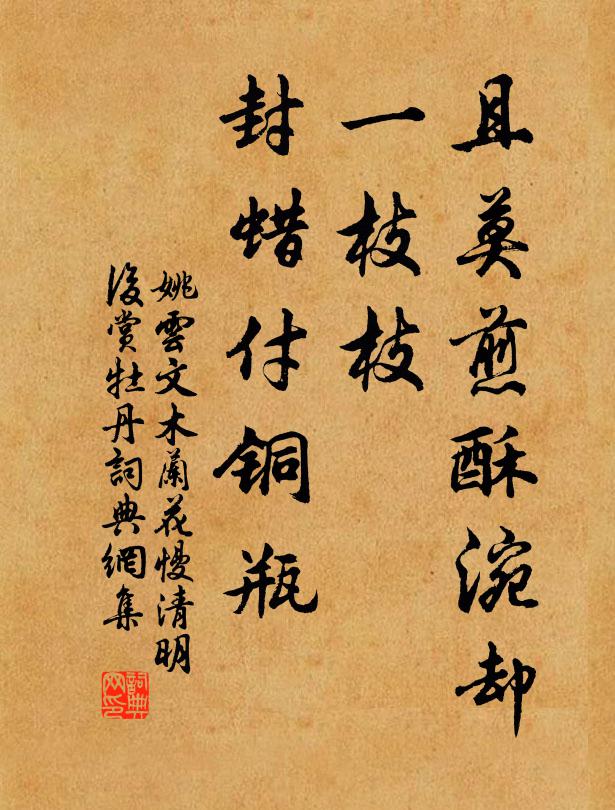 且莫煎酥涴却
一枝枝
封蜡付铜瓶
姚雲文木蘭花慢清明
後赏牡丹詞典網集
詞典网印